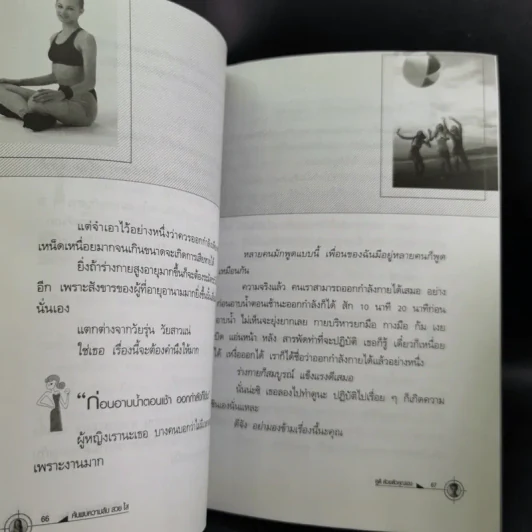 แต่จำเอาไว้อย่างหนึ่งว่าควรออกกำลัง
เหน็ดเหนื่อยมากจนเกินขนาดจะเกิดการเสีย
ยิ่งถ้าร่างกายสูงอายุมากขึ้นก็จะต้อง
อีก เพราะสังขารของผู้ที่อายุอานามมาก
นั่นเอง
แตกต่างจากวัยรุ่น วัยสาวแน่
ใช่เธอ เรื่องนี้จะต้องคำนึงให้มาก
"ก่อนอาบน้ำตอนเช้า ออกกำลัง
ผู้หญิงเรานะเธอ บางคนบอกว่า
เพราะงานมาก
66 ค้นพบความลับ สวย ใส
หลายคนมักพูดแบบนี้ เพื่อนของฉันมีอยู่หลายคนก็พูด
เหมือนกัน
ความจริงแล้ว คนเราสามารถออกกำลังกายได้เสมอ อย่าง
ก่อนอาบน้ำตอนเช้านะออกกำลังก็ได้ สัก 10 นาที 20 นาทีก่อน
อาบน้ำ ไม่เห็นจะยุ่งยากเลย กายบริหารยกมือ กางมือ ก้ม เงย
บิด แอ่นหน้า หลัง สารพัดท่าที่จะปฏิบัติ เธอก็รู้ เดี๋ยวก็เหนื่อย
ได้ เหงื่อออกได้ เราก็ได้ชื่อว่าออกกำลังกายได้แล้วอย่างหนึ่ง
ร่างกายก็สมบูรณ์ แข็งแรงดีเสมอ
นั่นน่ะซิ เธอลองไปทำดูนะ ปฏิบัติไปเรื่อย ๆ ก็เกิดความ
เองนั่นแหละ
ดีจัง อย่ามองข้ามเรื่องนี้นะคุณ
67